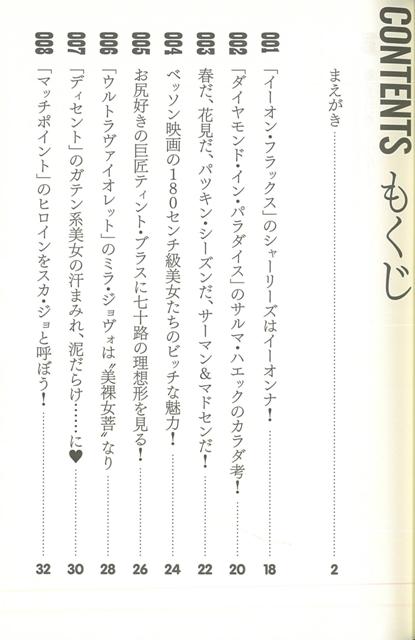 CONTENTS もくじ
まえがき 2
001 「イーオン・フラックス」のシャーリーズはイーオンナ！ 18
002 「ダイヤモンド・イン・パラダイス」のサルマ・ハエックのカラダ考！ 20
003 春だ、花見だ、パツキン・シーズンだ、サーマン＆マドセンだ！ 22
004 ベッソン映画の180センチ級美女たちのビッチな魅力！ 24
005 お尻好きの巨匠ティント・ブラスに七十路の理想形を見る！ 26
006 「ウルトラヴァイオレット」のミラ・ジョヴォは〝美裸女菩〟なり 28
007 「ディセント」のガテン系美女の汗まみれ、泥だらけ……に♥ 30
008 「マッチポイント」のヒロインをスカ・ジョと呼ぼう！ 32